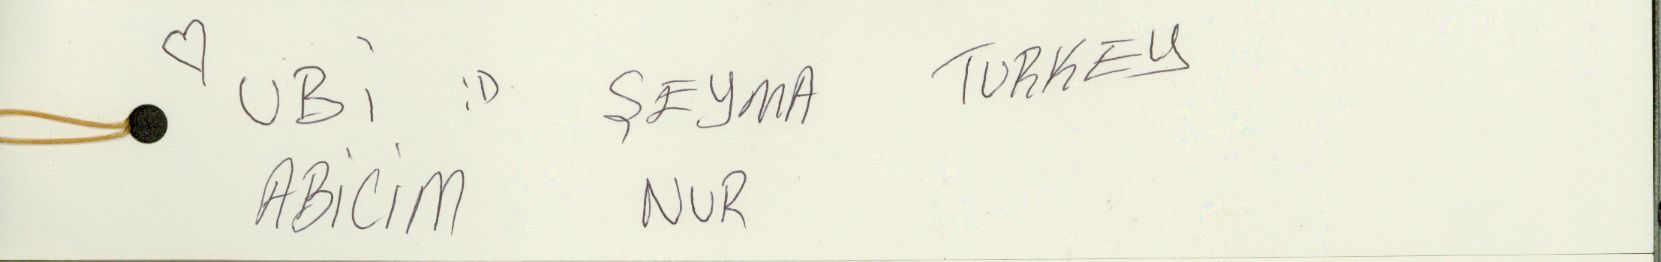 ♡ UBİ :D ŞEYMA TURKEY
ABİCİM NUR